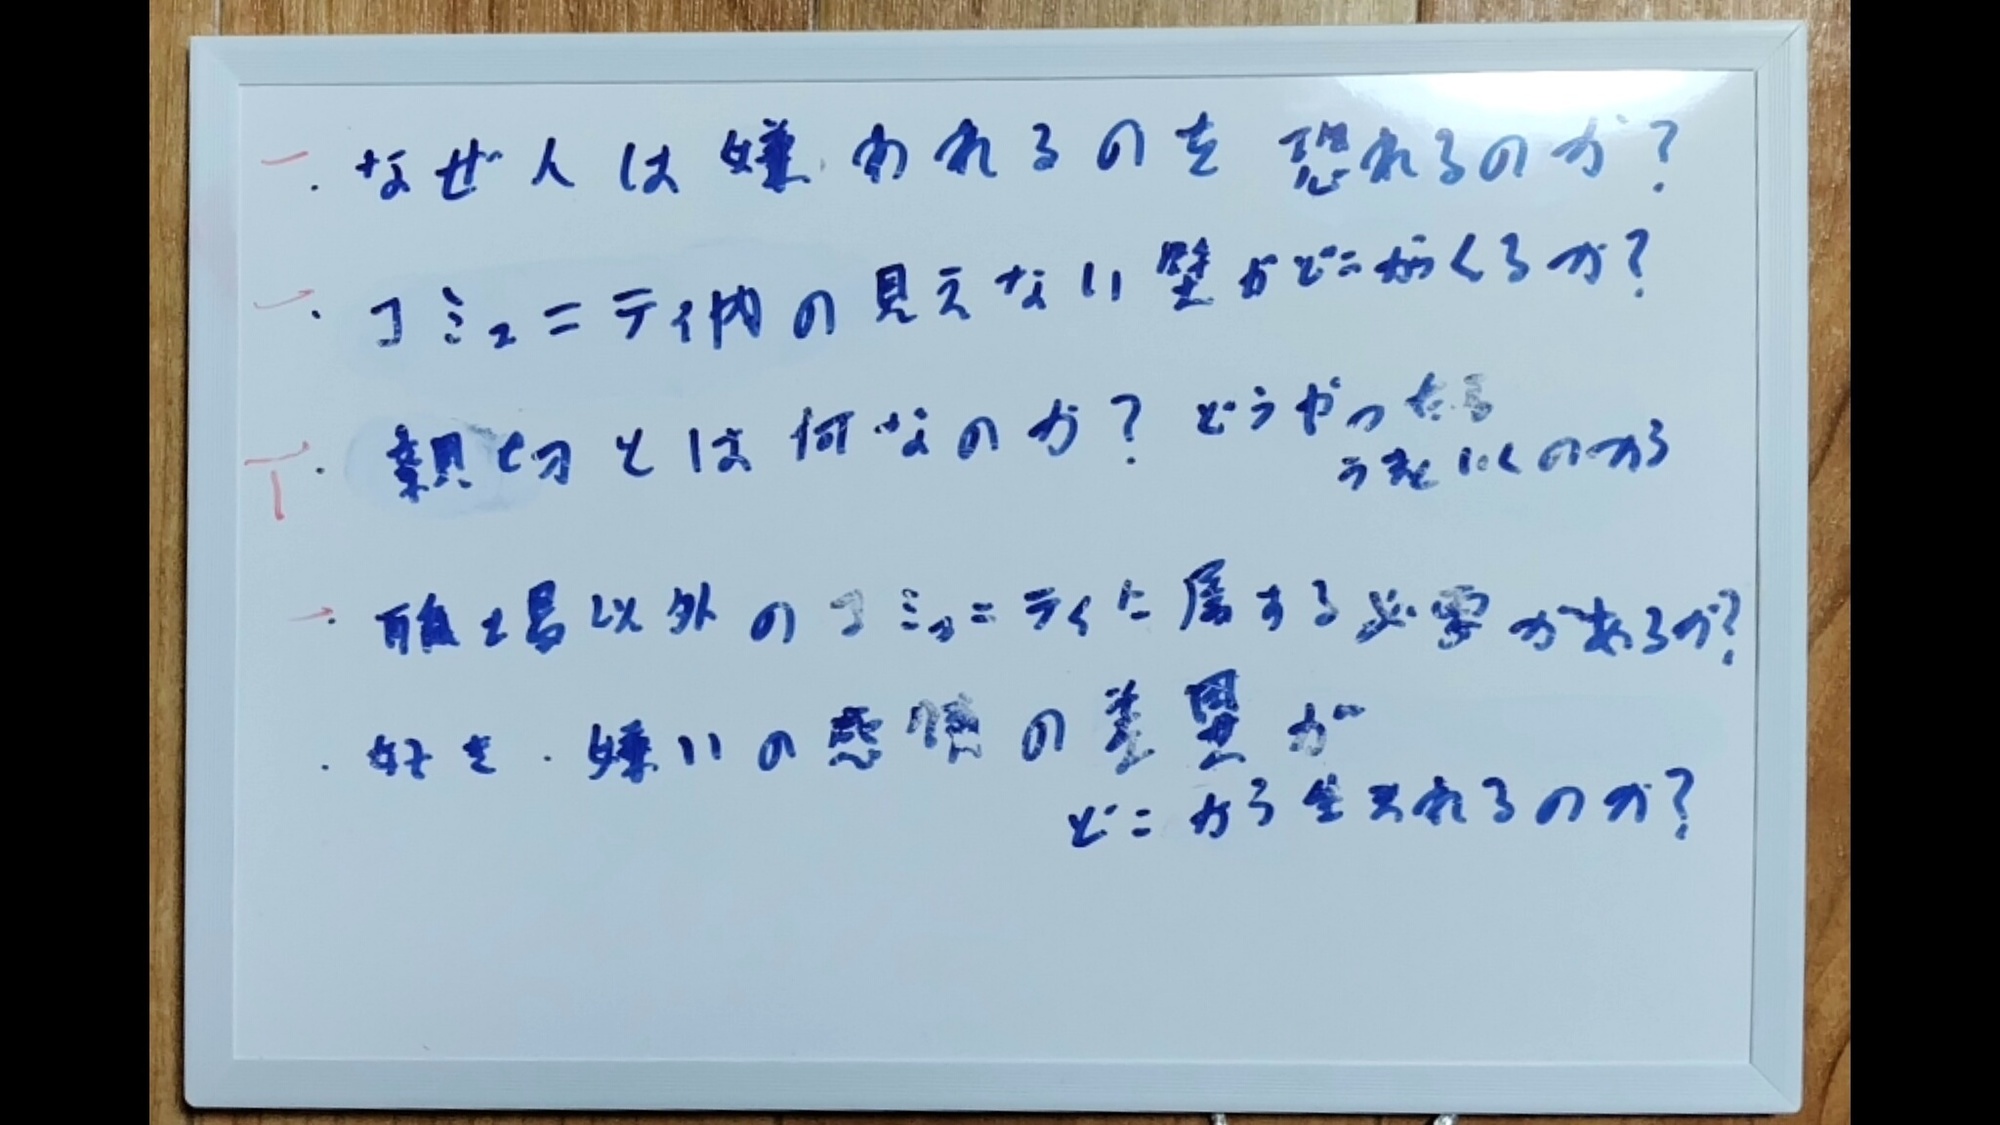 ・なぜ人は嫌われるのを恐れるのか?
・コミュニティ内の見えない壁がどこがくるか?
・親切とは何なのか? どうやったら
うまくいくのかろ
・職場以外のコミュニティに属する必要があるか?
・好き・嫌いの感情の差異が
どこから生まれるのか?